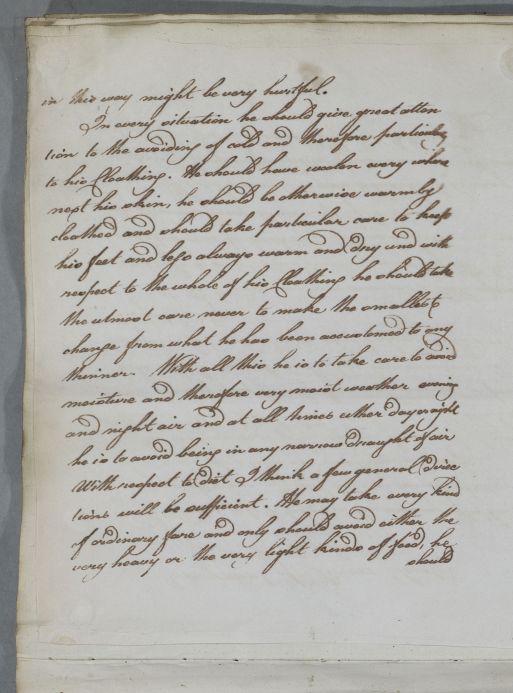 in this way might be very hurtful.
In every situation he should give great atten
tion to the avoiding of cold and therefore particularly
to his Cloathing. He should have woolen every where
next his skin, he should be otherwise warmly
cloathed and should take particular care to keep
his feet and legs always warm and dry and with
respect to the whole of his Cloathing he should take
the utmost care never to make the smallest
change from what he has been accustomed to any
thinner. With all this he is to take care to avoid
moisture and therefore very moist weather evening
and night air and at all times either day or night
he is to avoid being in any narrow draught of air
With respect to diet I think a few general Direc
tions will be sufficient. He may take every kind
of ordinary fare and only should avoid either the
very heavy or the very light kinds of food, he
should